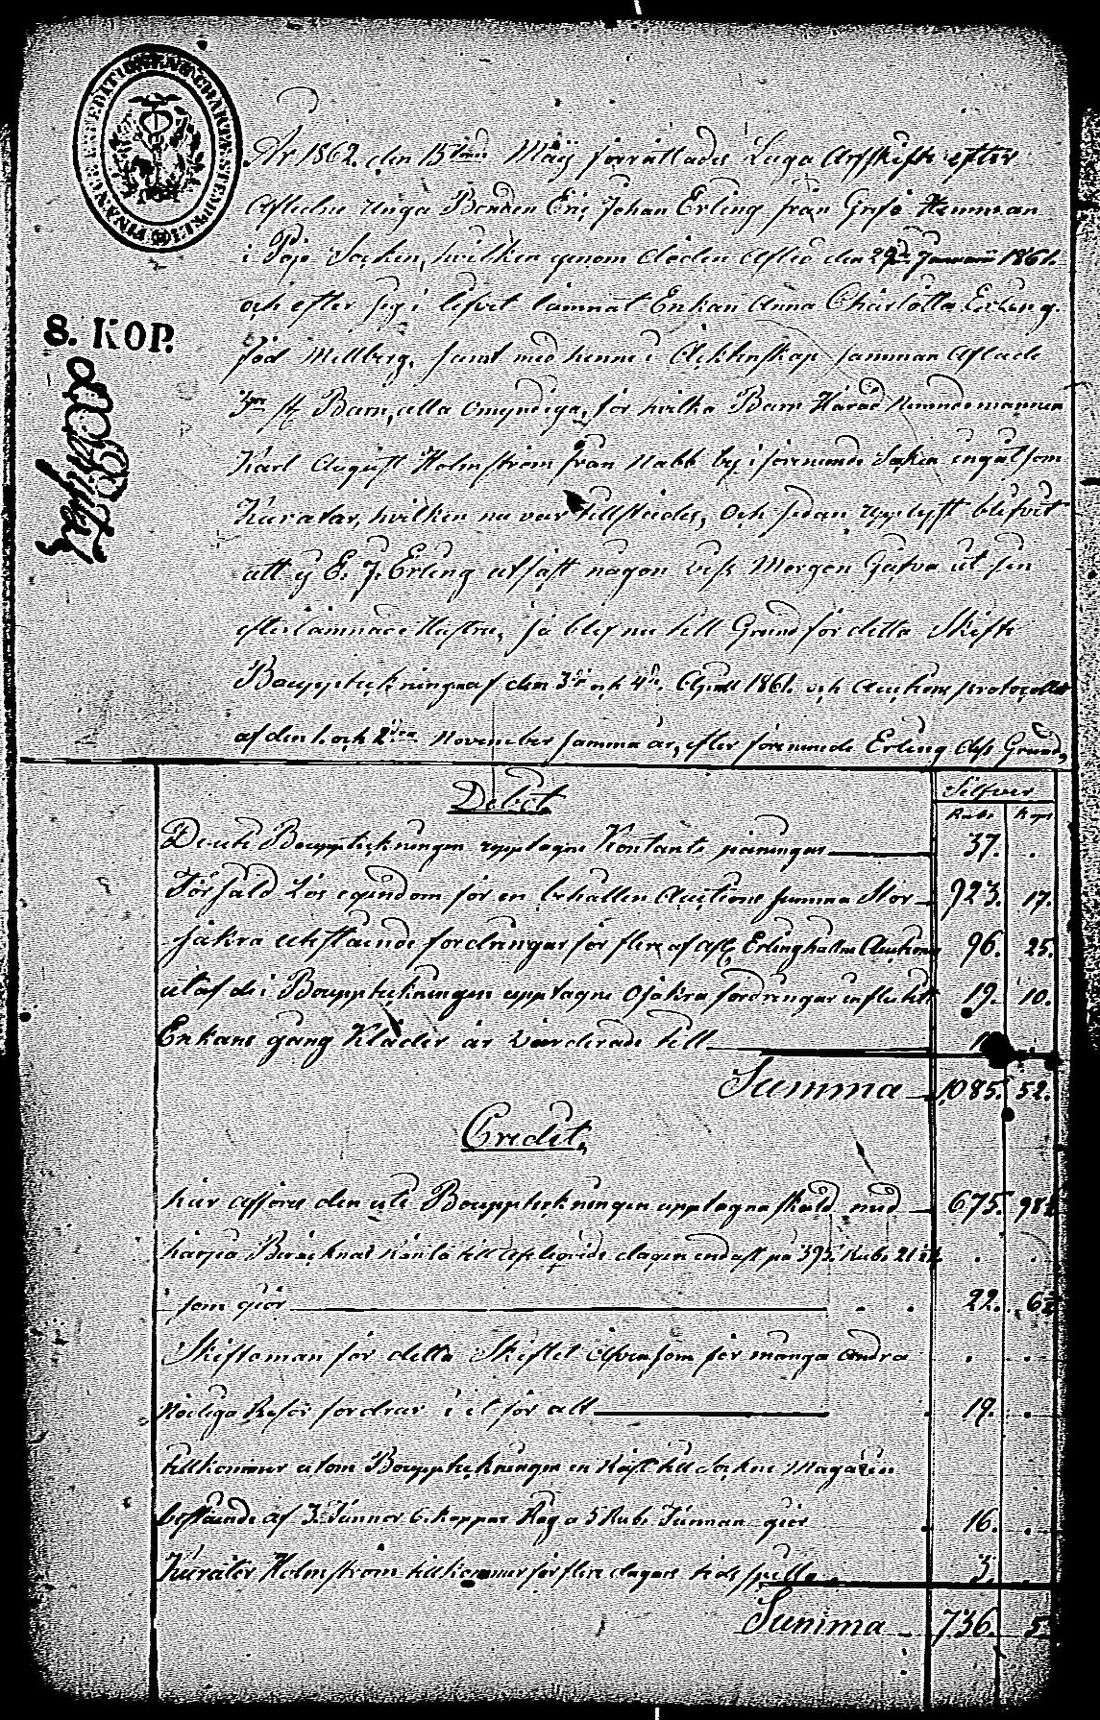 FINANCE EXPEDITIONEN CHARTÆ STEMPEL
8. KOP.
År 1862. den 15de Maij förrättades Laga Arfskifte efter
Aflidne Unga Bonden Eric Johan Erling från Grefs Hemman
i Pojo Socken, hvilken genom döden afled den 29de Januari 1861.
och efter sig i lifvet lämnat Enkan Anna Charlotta Erling
föd Millberg, samt med henne i Äktenskap samman Aflade
Barn, alla omyndiga, för hvilka Barn Härads Nämndemannen
Karl August Holmström från Nabb by i förenämnde Socken ingått som
Kurator, hvilken nu var tillstädes, Och sedan upplyst blifvit
att ej E. J. Erling utfäst någon viss Morgon Gåfva åt sin
efterlämnade Hustru, så blef nu till Grund för detta Skifte
Bouppteckningen af den 3dje och 4de April 1861. och Auctions protocollet
af den 1. och 2dra November samma år, efter förenämnde Erling Ass Grund,
Debet
Silfver
Rub. Kop.
De uti Bouppteckningen upptagne Kontante päningar 37. .
Försåld Lös egendom för en behållen Auctions summa Stor 923. 17.
Säkra utestående fordringar för flere af Erling hållne Auctioner 96. 25.
utaf de i Bouppteckningen upptagne Osäkra fordringar influtit 19. 10.
Enkans gång Kläder är värderade till
Summa 1085. 52.
Credit,
här afföres den uti Bouppteckningen upptagna skuld med 675. 98
härpå Beräknad Ränta till
som giör 22. 6
Skiftsman för detta Skiftet äfvensom för många andra . .
Nödiga Resor fordrar i ett för allt 19. .
tillkommer utom Bouppteckningen en Rest till Sockne Magazin
bestående af 3. Tunnor 6. kappar Råg a 5 Rub. Tunnan giör 16. .
Kurator Holmström tillkommer för flere dagars tids spillo 3.
Summa 736. 5